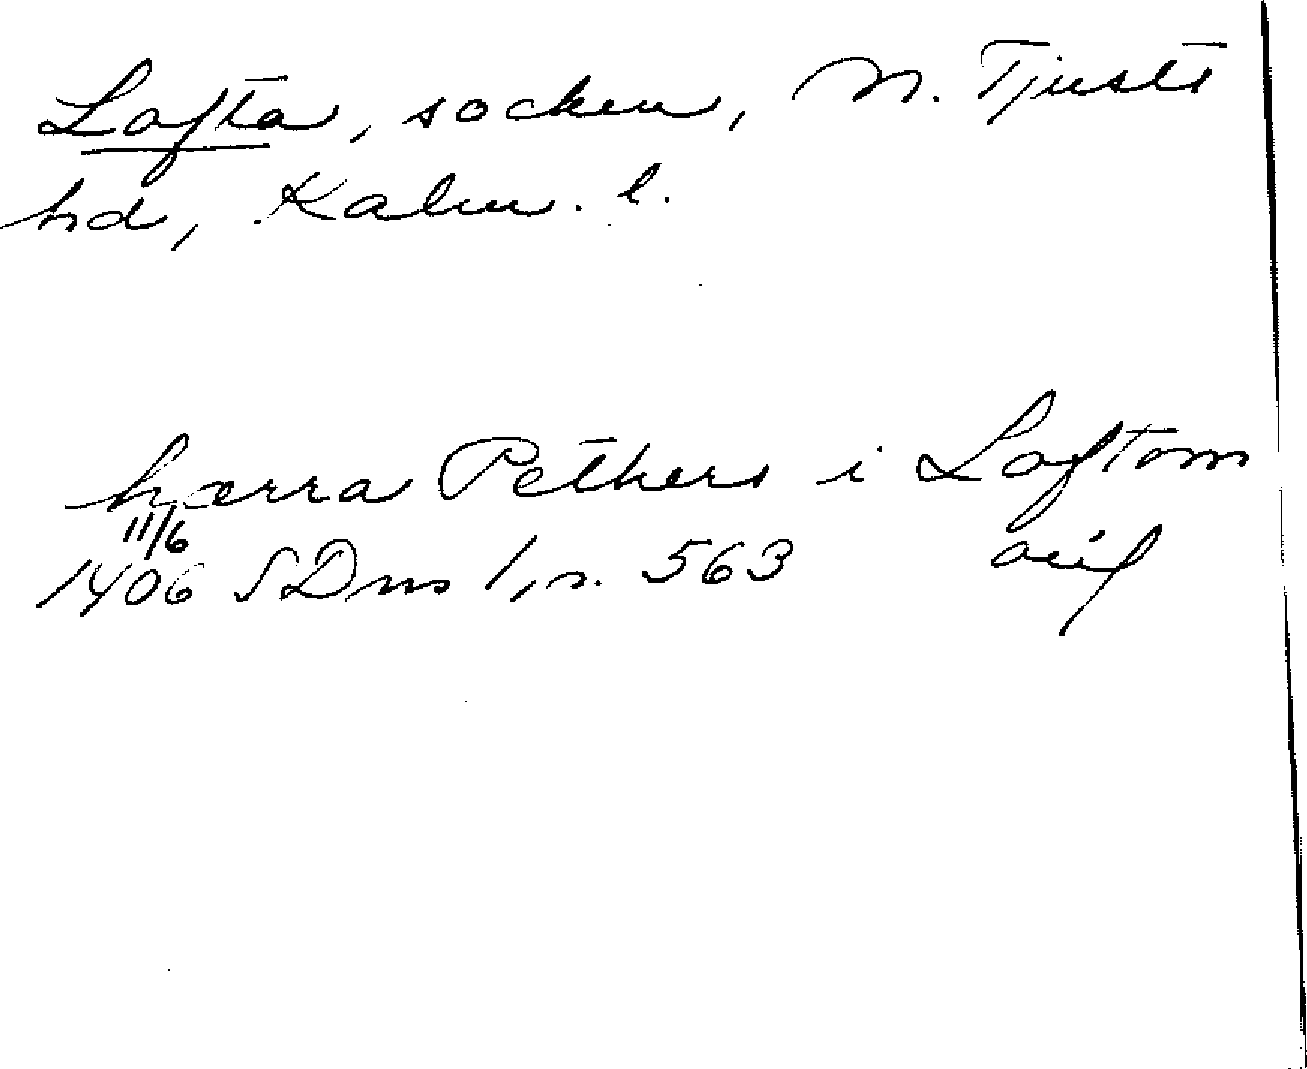 Lofta, socken, N. Tjusts
hd, Kalm. l.
hærra Pethers i Loftom
11/6
1406 SDns 1, s. 563